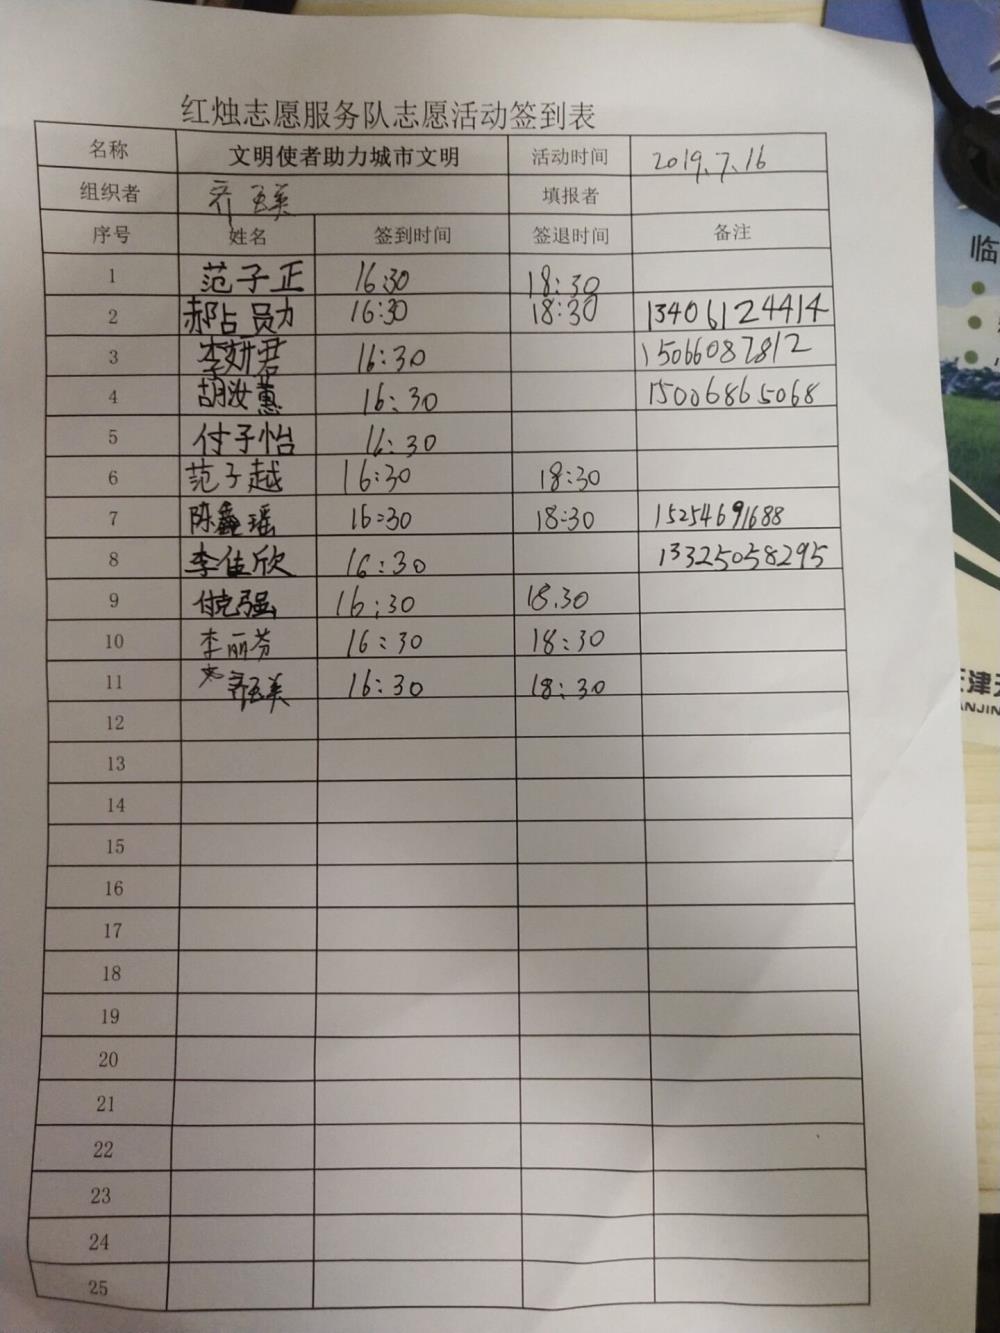 红烛志愿服务队志愿活动签到表
名称 文明使者助力城市文明 活动时间 2019.7.16
组织者 齐玉美 填报者
序号 姓名 签到时间 签退时间 备注
1 范子正 16:30 18:30
2 郝占勋 16:30 18:30 13406124414
3 李妍君 16:30 15066087812
4 胡汝蕙 16:30 15006865068
5 付子怡 16:30
6 范子越 16:30 18:30
7 陈鑫瑶 16:30 18:30 15254691688
8 李佳欣 16:30 13325058295
9 付克强 16:30 18.30
10 李丽芬 16:30 18:30
11 齐玉美 16:30 18:30
12
13
14
15
16
17
18
19
20
21
22
23
24
25
临
天津
ANJIN